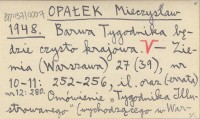 OPAŁEK Mieczysław
1948. Barwa Tygodnika bę-
dzie czysto krajowa. V — Zie-
mia (Warszawa) 27 (39), nr
10-11: 252-256, il. oraz (errata)
nr 12: 280.
Omówienie „Tygodnika Illu-
strowanego" (wychodzącego w War-